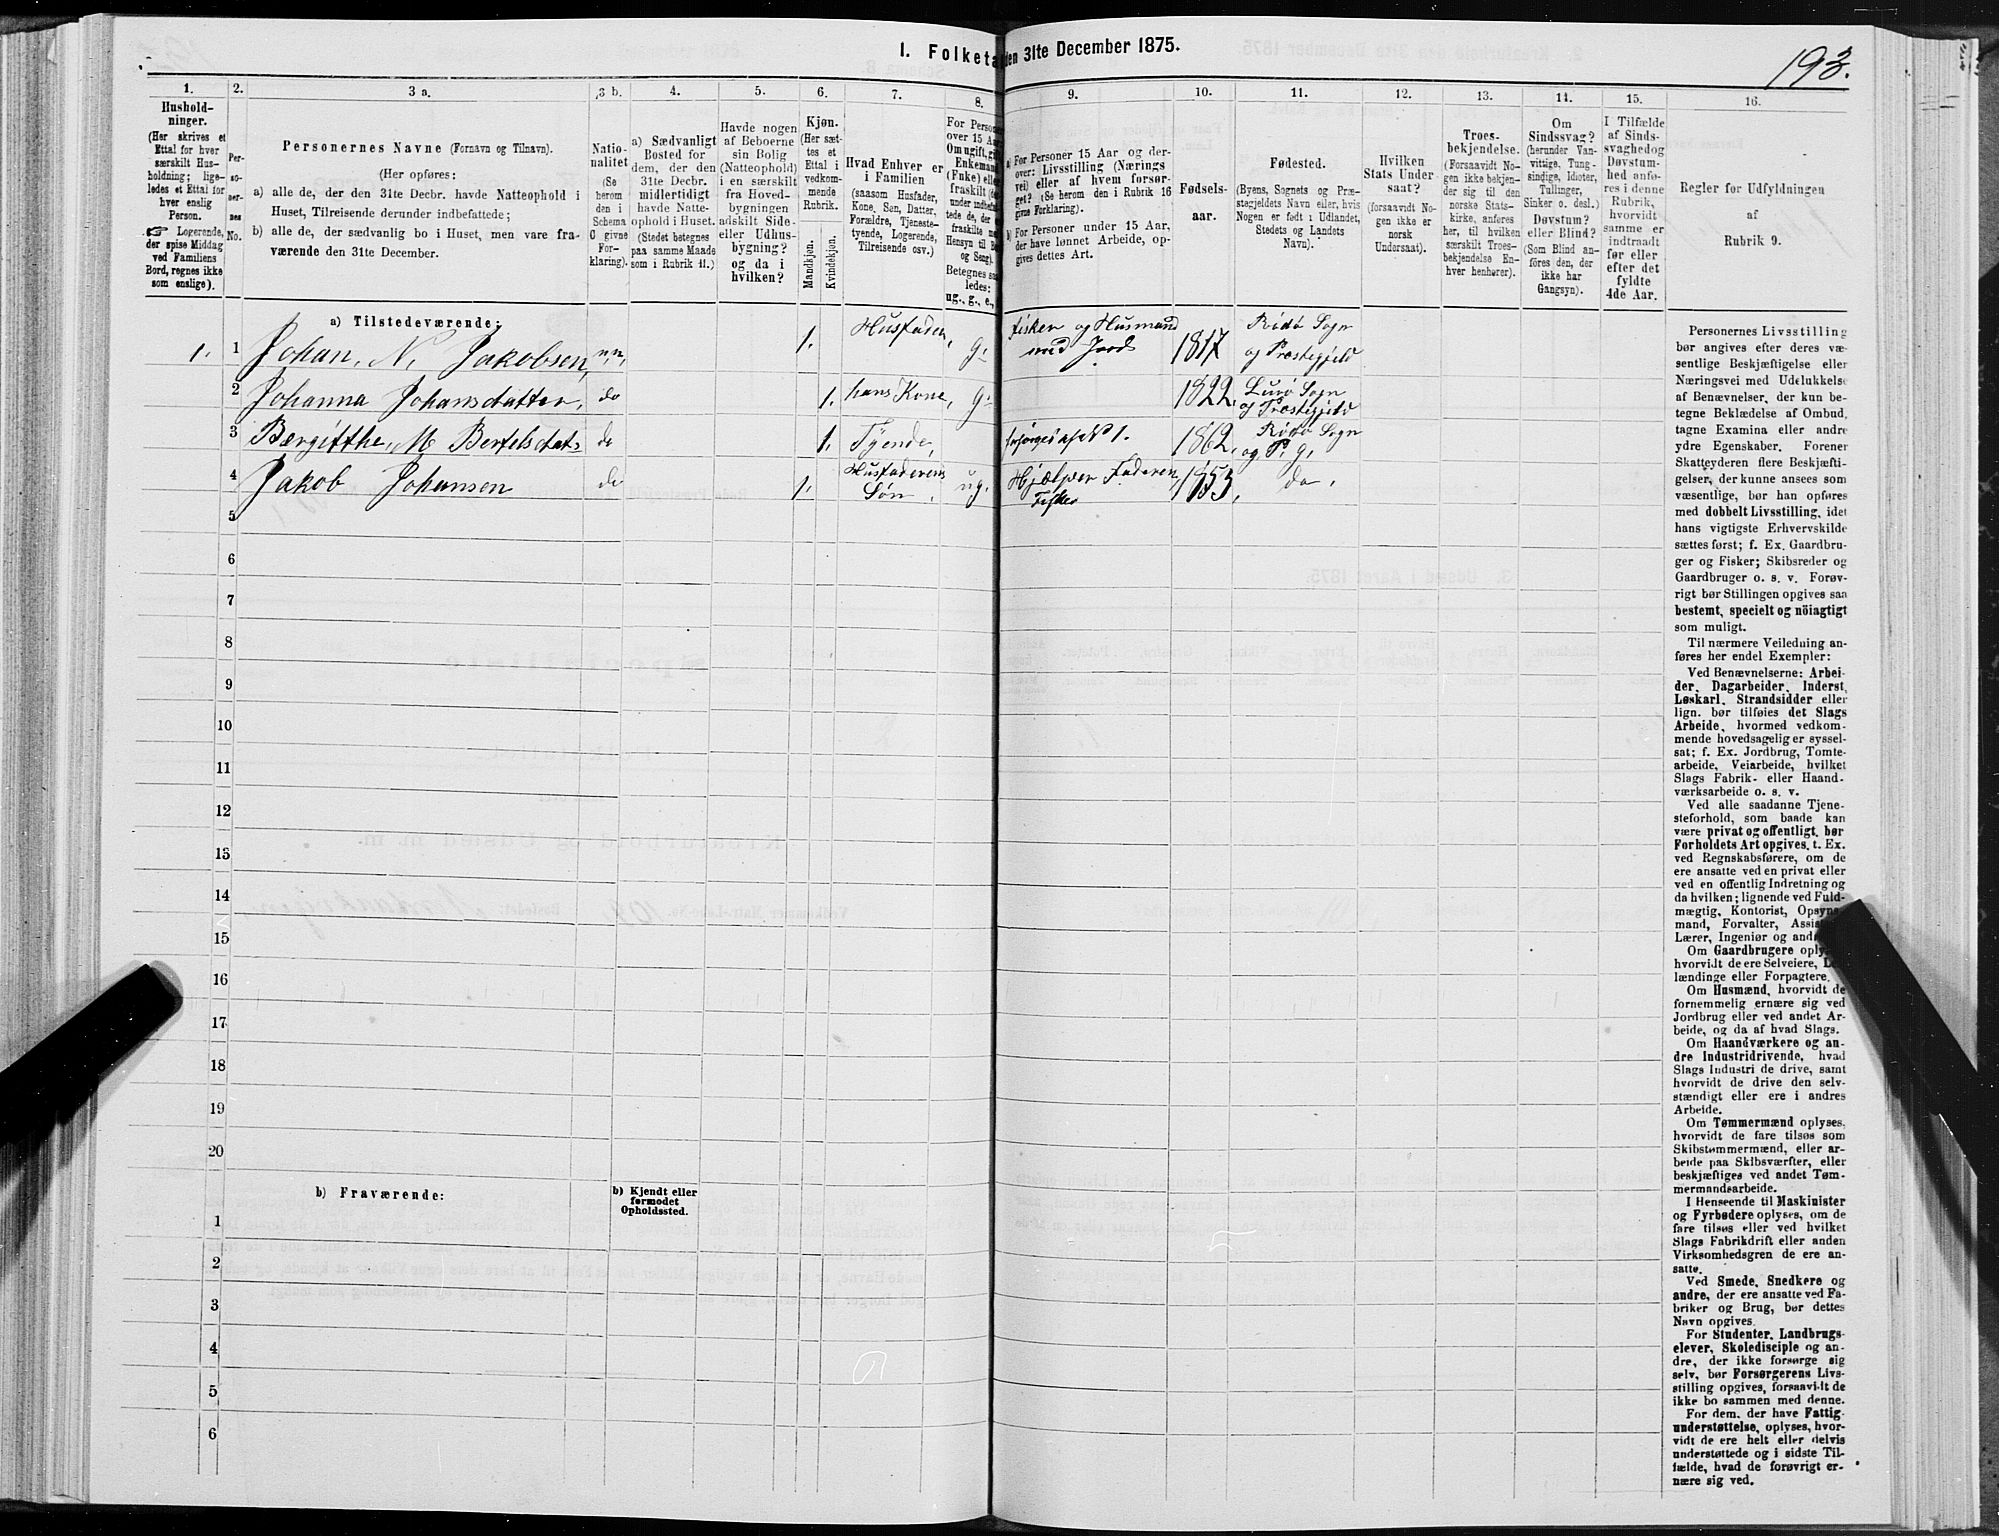 I. Folketa den 31te December 1875.
193.
1.
Hushold-
ninger.
(Her skrives et
Ettal for hver
særskilt Hus-
holdning; lige-
ledes et Ettal for
hver enslig
Person.
☞ Logerende,
der spise Middag
ved Familiens
Bord, regnes ikke
som enslige).
2.
Per-
so-
ner-
nes
No.
3 a.
Personernes Navne (Fornavn og Tilnavn).
(Her opføres:
a) alle de, der den 31te Decbr. havde Natteophold i
Huset, Tilreisende derunder indbefattede;
b) alle de, der sædvanlig bo i Huset, men vare fra-
værende den 31te December.
3 b.
Natio-
nalitet
(Se
herom
den i
Schema
C givne
For-
klaring).
4.
a) Sædvanligt
Bosted for
dem, der den
31te Decbr.
midlertidigt
havde Natte-
ophold i Huset.
(Stedet betegnes
paa samme Maade
som i Rubrik 11.)
5.
Havde nogen
af Beboerne
sin Bolig
(Natteophold)
i en særskilt
fra Hoved-
bygningen
adskilt Side-
eller Udhus-
bygning?
og da i
hvilken?
6.
Kjøn.
(Her sæt-
tes et
Ettal i
vedkom-
mende
Rubrik.
Mandkjøn.
Kvindekjøn.
7.
Hvad Enhver er
i Familien
(saasom Husfader,
Kone, Søn, Datter,
Forældre, Tjeneste-
tyende, Logerende,
Tilreisende osv.)
8.
For Person
over 15 Aar
Om ugift, gift
Enkemand
(Enke) eller
fraskilt
Betegnes saa-
ledes:
ug., g., e.,
9.
a) For Personer 15 Aar og der-
over: Livsstilling (Nærings
vei) eller af hvem forsør-
get? (Se herom den i Rubrik 16
givne Forklaring).
b) For Personer under 15 Aar,
der have lønnet Arbeide, op-
gives dettes Art.
10.
Fødsels-
aar.
11.
Fødested.
(Byens, Sognets og Præ-
stegjeldets Navn eller, hvis
Nogen er født i Udlandet,
Stedets og Landets
Navn).
12.
Hvilken
Stats Under-
saat?
(forsaavidt No-
gen ikke er
norsk
Undersaat).
13.
Troes-
bekjendelse.
(Forsaavidt No-
gen ikke bekjen-
der sig til den
norske Stats-
kirke, anføres
her, til hvilken
særskilt Troes-
bekjendelse En-
hver henhører).
14.
Om
Sindssvag?
(herunder Van-
vittige, Tung-
sindige, Idioter,
Tullinger,
Sinker o. desl.)
Døvstum?
eller Blind?
(Som Blind an-
føres den, der
ikke har
Gangsyn).
15.
I Tilfælde
af Sinds-
svaghed og
Døvstum-
hed anfø-
res i denne
Rubrik,
hvorvidt
samme er
indtraadt
før eller
efter det
fyldte
4de Aar.
16.
Regler for Udfyldningen
af
Rubrik 9.
a) Tilstedeværende:
1. 1 Johan. N. Jakobsen, n,n, 1. Husfader, g. Fisker og Husmand med Jord 1817 Rødø Sogn og Præstegjeld
2 Johanna Johansdatter, do 1. hans Kone, g. 1822. Lurø Sogn og Præstegjeld
3 Bergitthe, M Bertelsdat: do 1. Tyende, forsørges af No 1. 1862. Rødø Sogn og P. g.
4 Jakob Johansen do 1. Husfaderens Søn. ug. Hjælper Faderen, Fisker 1853. do.
5
6
7
8
9
10
11
12
13
14
15
16
17
18
19
20
b) Fraværende:
b) Kjendt eller
formodet
Opholdssted.
1
2
3
4
5
6
Personernes Livsstilling
bør angives efter deres væ-
sentlige Beskjæftigelse eller
Næringsvei med Udelukkelse
af Benævnelser, der kun be-
tegne Beklædelse af Ombud,
tagne Examina eller andre
ydre Egenskaber. Forener
Skatteyderen flere Beskjæfti-
gelser, der kunne ansees som
væsentlige, bør han opføres
med dobbelt Livsstilling, idet
hans vigtigste Erhvervskilde
sættes først; f. Ex. Gaardbru-
ger og Fisker; Skibsreder og
Gaardbruger o. s. v. Forøv-
rigt bør Stillingen opgives saa
bestemt, specielt og nöiagtigt
som muligt.
Til nærmere Veiledning an-
føres her endel Exempler:
Ved Benævnelserne: Arbei-
der, Dagarbeider, Inderst,
Løskarl, Strandsidder eller
lign. bør tilføies det Slags
Arbeide, hvormed vedkom-
mende hovedsagelig er syssel-
sat; f. Ex. Jordbrug, Tomte-
arbeide, Veiarbeide, hvilket
Slags Fabrik- eller Haand-
værksarbeide o. s. v.
Ved alle saadanne Tjene-
steforhold, som baade kan
være privat og offentligt, bør
Forholdets Art opgives, t. Ex.
ved Regnskabsførere, om de
ere ansatte ved en privat eller
ved en offentlig Indretning og
da hvilken; lignende ved Fuld-
mægtig, Kontorist, Opsyns-
mand, Forvalter, Assis
Lærer, Ingeniør og and
Om Gaardbrugere oply
hvorvidt de ere Selveiere, L
lændinge eller Forpagtere.
Om Husmænd, hvorvidt de
fornemmelig ernære sig ved
Jordbrug eller ved andet Ar-
beide, og da af hvad Slags.
Om Haandværkere og an-
dre Industridrivende, hvad
Slags Industri de drive, samt
hvorvidt de drive den selv-
stændigt eller ere i andres
Arbeide.
Om Tømmermænd oplyses,
hvorvidt de fare tilsøs som
Skibstømmermænd, eller ar-
beide paa Skibsværfter, eller
beskjæftiges ved andet Tøm-
mermandsarbeide.
I Henseende til Maskinister
og Fyrbødere oplyses, om de
fare tilsøs eller ved hvilket
Slags Fabrikdrift eller anden
Virksomhedsgren de ere an-
satte.
Ved Smede, Snedkere og
andre, der ere ansatte ved Fa-
briker og Brug, bør dettes
Navn opgives.
For Studenter, Landbrugs-
elever, Skoledisciple og an-
dre, der ikke forsørge sig
selv, bør Forsørgerens Livs-
stilling opgives, forsaavidt de
ikke bo sammen med denne.
For dem, der have Fattig-
understøttelse, oplyses, hvor-
vidt de ere helt eller delvis
understøttede og i sidste Til-
fælde, hvad de forøvrigt er-
nære sig ved.